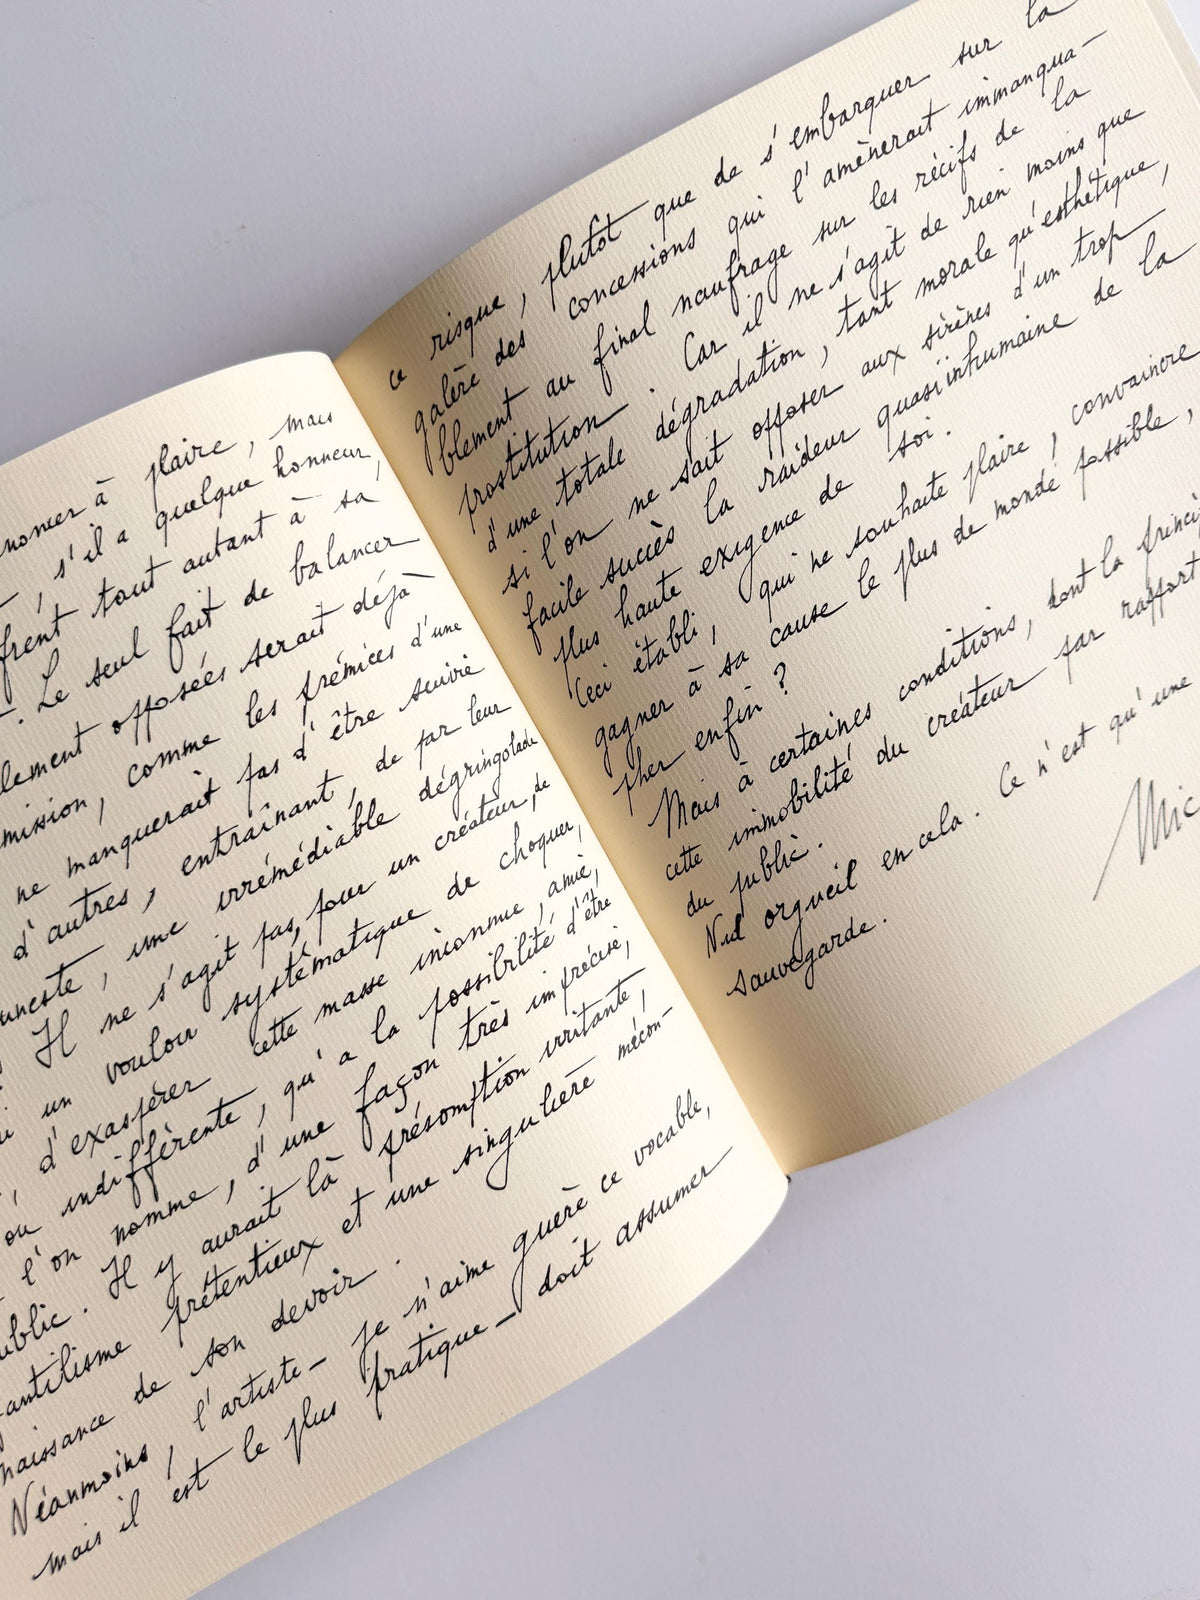 à plaire, mais
, s'il a quelque honneur,
tout autant à sa
. Le seul fait de balancer
opposées serait déjà
mission, comme les prémices d'une
ne manquerait pas d'être suivie
d'autres, entraînant, de par leur
, une irrémédiable dégringolade
Il ne s'agit pas, pour un créateur, de
un vouloir systématique de choquer,
, d'exaspérer cette masse inconnue, amie,
ou indifférente, qu'a la possibilité d'être
l'on nomme, d'une façon très imprécise,
. Il y aurait là présomption irritante,
prétentieux et une singulière mécon-
naissance de son devoir.
Néanmoins, l'artiste — je n'aime guère ce vocable,
mais il est le plus pratique — doit assumer
ce risque, plutôt que de s'embarquer sur la
galère des concessions qui l'amènerait immanqua-
blement au final naufrage sur les récifs de la
prostitution. Car il ne s'agit de rien moins que
d'une totale dégradation, tant morale qu'esthétique,
si l'on ne sait opposer aux sirènes d'un trop
facile succès la raideur quasi inhumaine de la
plus haute exigence de soi.
Ceci établi, qui ne souhaite plaire, convaincre
gagner à sa cause le plus de monde possible,
pher enfin ?
Mais à certaines conditions, dont la
cette immobilité du créateur par rapport
du public.
Nul orgueil en cela. Ce n'est qu'une
sauvegarde.
Mic